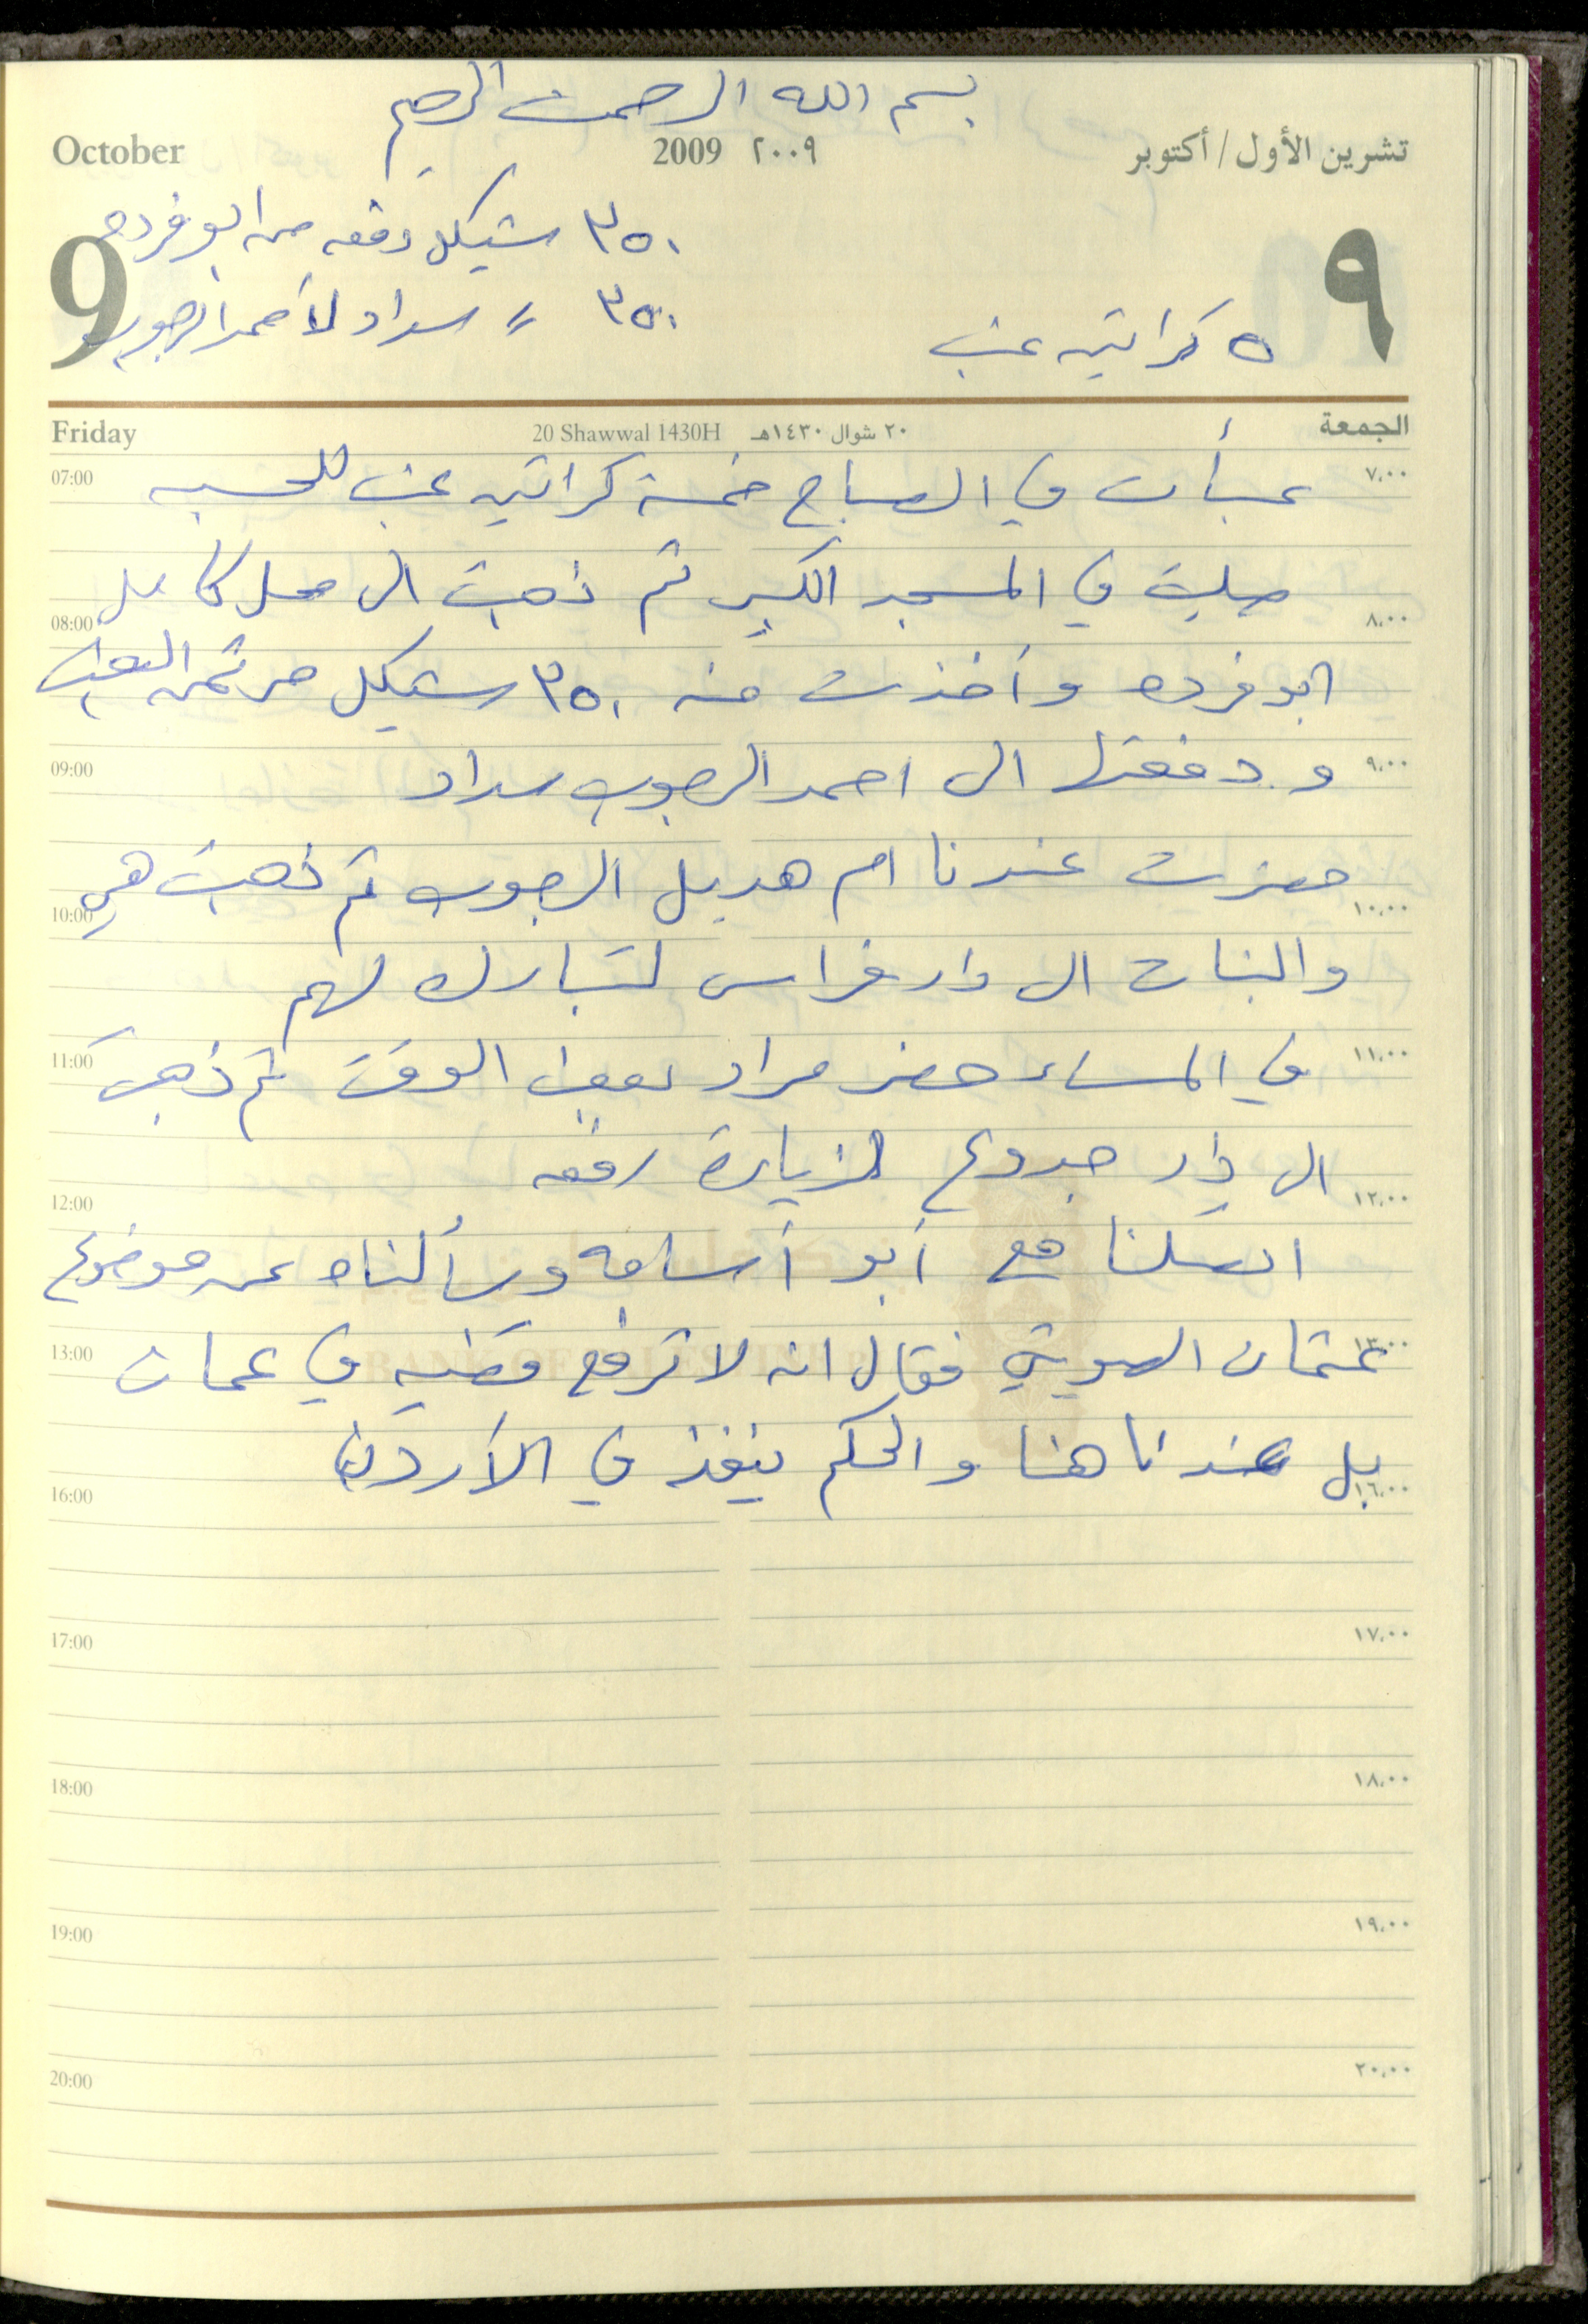 بسم الله الرحمن الرحيم
October 2009 ٢٠٠٩ تشرين الأول / أكتوبر
٣٥٠ شيكل دفعه من ابو فرده
9 ٩
٣٥٠ // سداد لأحمد الرجوب
٥ كراتين عنب
Friday 20 Shawwal 1430H ٢٠ شوال ١٤٣٠هـ الجمعة
07:00 ٧،٠٠
عبأت في الصباح خمسة كراتين عنب للحسبه
صليت في المسجد الكبير ثم ذهبت الى محل كامل
08:00 ٨،٠٠
ابو فرده وأخذت منه ٣٥٠ شيكل من ثمن العنب
09:00 ٩،٠٠
ودفعتها الى احمد الرجوب سداد
حضرت عندنا ام هديل الرجوب ثم ذهبت هي
10:00 ١٠،٠٠
والبنات الى دار فراس لتبارك لهم
11:00 ١١،٠٠
في المساء حضر مراد لبعض الوقت ثم ذهبت
الى دار جدوع لزيارة رفقه
12:00 ١٢،٠٠
اتصلنا مع أبو أسامه وسألناه عن موضوع
13:00 ١٣،٠٠
عثمان الصويتي فقال انه لا ترفع قضيه في عمان
بل عندنا هنا والحكم ينفذ في الأردن
16:00 ١٦،٠٠
17:00 ١٧،٠٠
18:00 ١٨،٠٠
19:00 ١٩،٠٠
20:00 ٢٠،٠٠